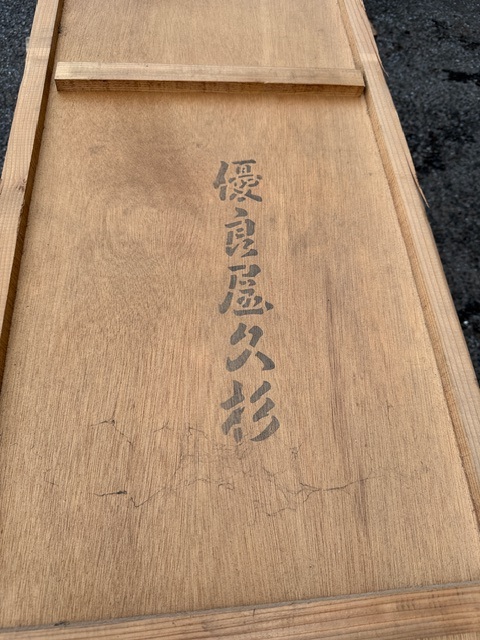 優良屋久杉